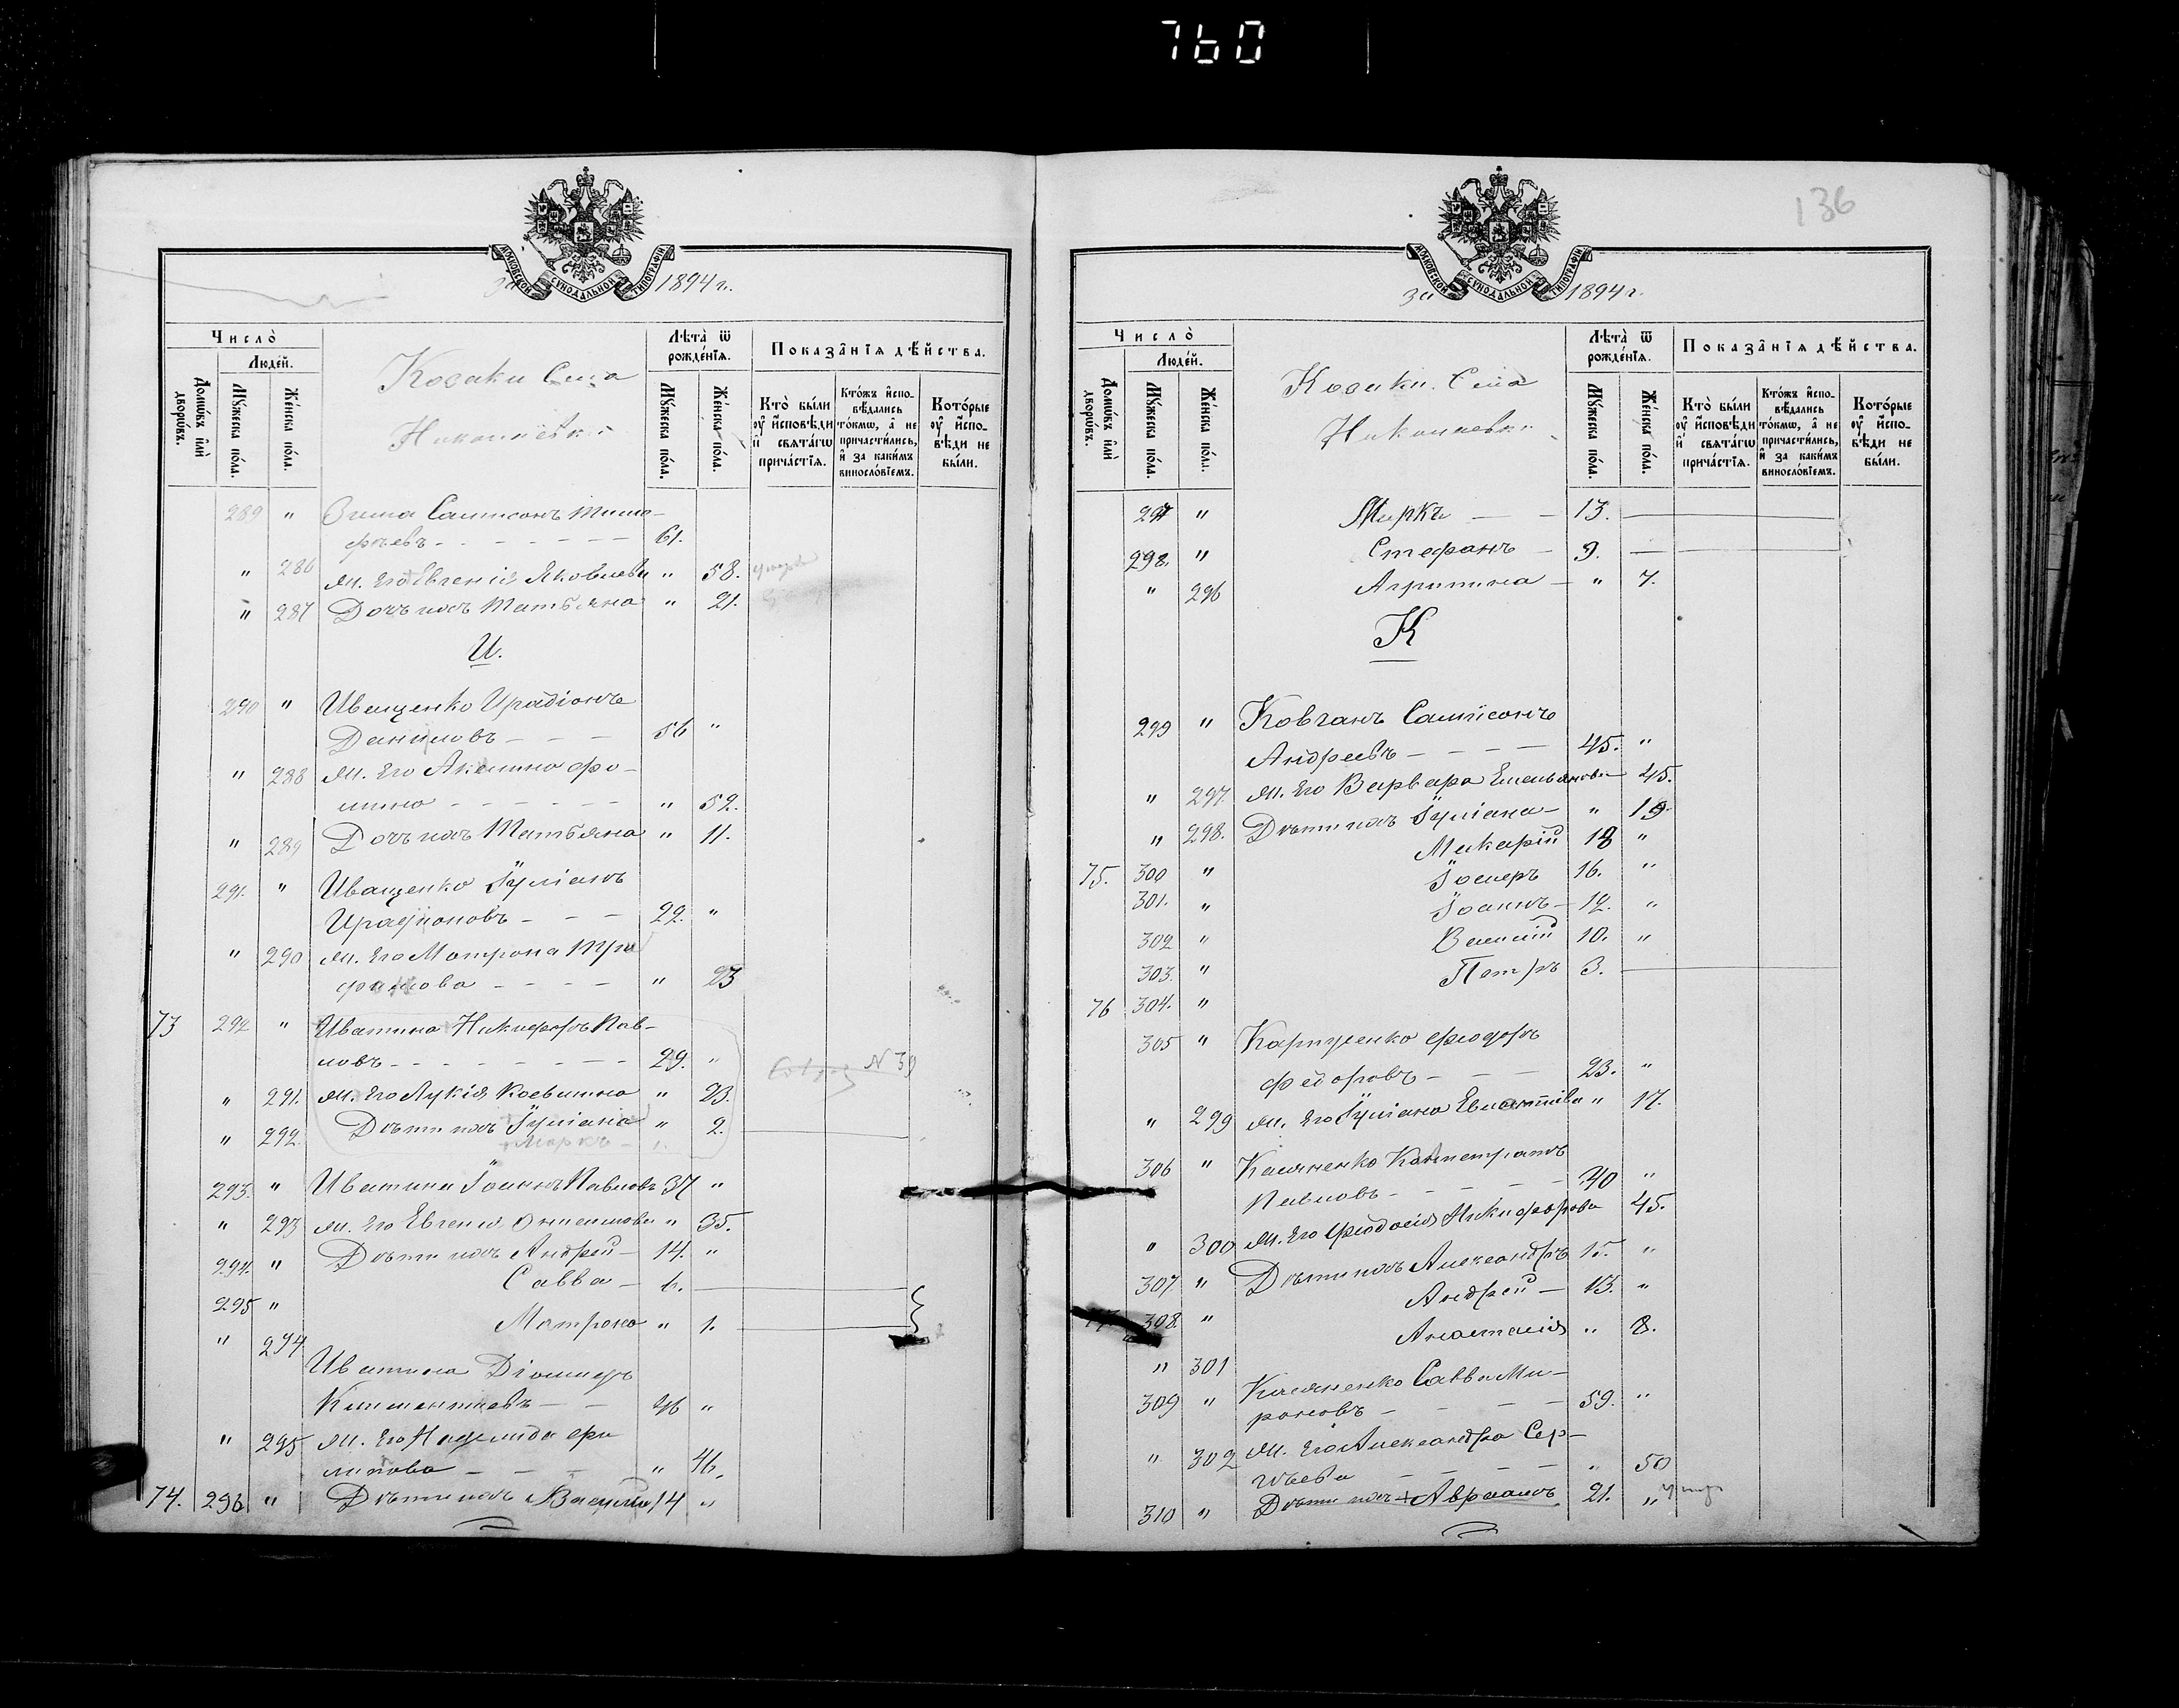 760
136
МОСКОВСКОЙ СѴНОДАЛЬНОЙ ТИПОГРАФІИ
за 1894 г.
Число̀
Людéй.
Домѡ́въ и҆лѝ дворѡ́въ.
Мꙋ́жеска по́ла.
Же́нска по́ла.
Козаки Села
Николаевки
Лѣта̀ ѿ рожде́нїѧ.
Мꙋ́жеска по́ла.
Же́нска по́ла.
Показа̑нїѧ дѣ́йства.
Кто̀ бы́ли ᲂу҆ и҆́сповѣди и҆ свѧта́гѡ прича́стїѧ.
Кто́жъ и҆спо-
вѣ́дались
то́кмѡ, а҆ не
причасти́лись,
и҆ за каки́мъ
винословїемъ.
Кото́рые
ᲂу҆ и҆́спо-
вѣди не
бы́ли.
289 " Зима Сампсонъ Тимо-
фѣевъ - - - - - - 61.
" 286 ж. его Евгенія Яковлева " 58. умер
" 287 Дочь ихъ Татьяна " 21.
И.
290 " Иващенко Иродіонъ
Даниловъ - - - 56 "
" 288 ж. его Акилина Фо-
мина - - - - - " 52.
" 289 Дочь ихъ Татьяна " 11.
291. " Иващенко Іуліанъ
Иродіоновъ - - - 22. "
" 290 ж. его Матрона Три
фонова - - - - " 23
73 292 " Иватина Никифоръ Пав-
ловъ - - - - - - - 29. "
N 39
" 291. ж. его Лукія " 23.
" 292. Дѣти ихъ Іуліанія " 2.
Маркъ - 1.
293. " Иватина Іоаннъ Павловъ 37 "
" 293 ж. его Евгенія " 35.
294. " Дѣти ихъ Андрей - 14. "
295 " Савва - 6.
" 294 Матрона " 1.
Иватина Діомидъ
Климентіевъ - - 46 "
" 295 ж. его Надежда Фи
липова - - - " 46.
74. 296. " Дѣти ихъ Василій 14 "
за 1894 г.
Число̀
Людéй.
Домѡ́въ и҆лѝ дворѡ́въ.
Мꙋ́жеска по́ла.
Же́нска по́ла.
Козаки Села
Николаевки
Лѣта̀ ѿ рожде́нїѧ.
Мꙋ́жеска по́ла.
Же́нска по́ла.
Показа̑нїѧ дѣ́йства.
Кто̀ бы́ли ᲂу҆ и҆́сповѣди и҆ свѧта́гѡ прича́стїѧ.
Кто́жъ и҆спо-
вѣ́дались
то́кмѡ, а҆ не
причасти́лись,
и҆ за каки́мъ
винословїемъ.
Кото́рые
ᲂу҆ и҆́спо-
вѣди не
бы́ли.
297 " Маркъ — — 13.
298. " Стефанъ — 9.
" 296 Агрипина — " 7.
К
299 " Ковганъ Сампсонъ
Андреевъ - - - - 45. "
" 297. ж. его Варвара Емельянова 45.
" 298. Дѣти ихъ Іуліана - " 19.
75. 300 " Макарій 18 "
301. " Іосифъ 16. "
302 " Іоаннъ - 12. "
303. " Василій 10. "
76 304. " Петръ 3.
305 " Карпуенко Феодоръ
Федоровъ - - - 23. "
" 299 ж. его Іуліана " 17.
306 " Касяненко
Павловъ - - - - - 40 "
" 300 ж. его Феодосія Никифорова 45.
307. " Дѣти ихъ Александръ 15. "
77. 308. " Андрей - 13. "
" 301 Анастасія " 8.
309 " Касяненко Савва Ми-
роновъ - - - - 59. "
" 302 ж. его Александра Сер-
гѣева - - - - " 50
310 " Дѣти ихъ + Авраамъ 21. " умер